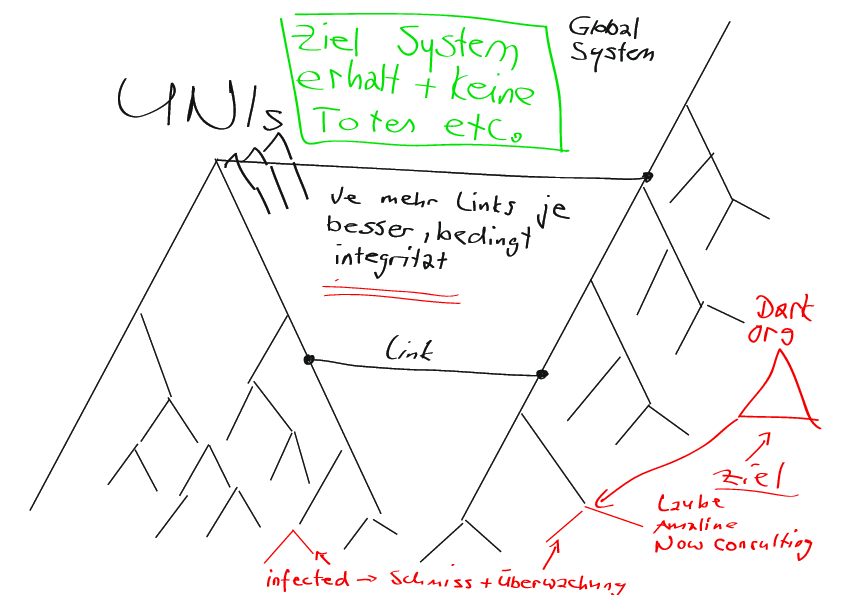 Global
System
Ziel System
erhalt + keine
Toten etc.
UNIs
Je mehr Links je
besser, bedingt
integrität
Link
Dark
org
Ziel
Laube
Amaline
Now Consulting
infected → Schmiss + Überwachung